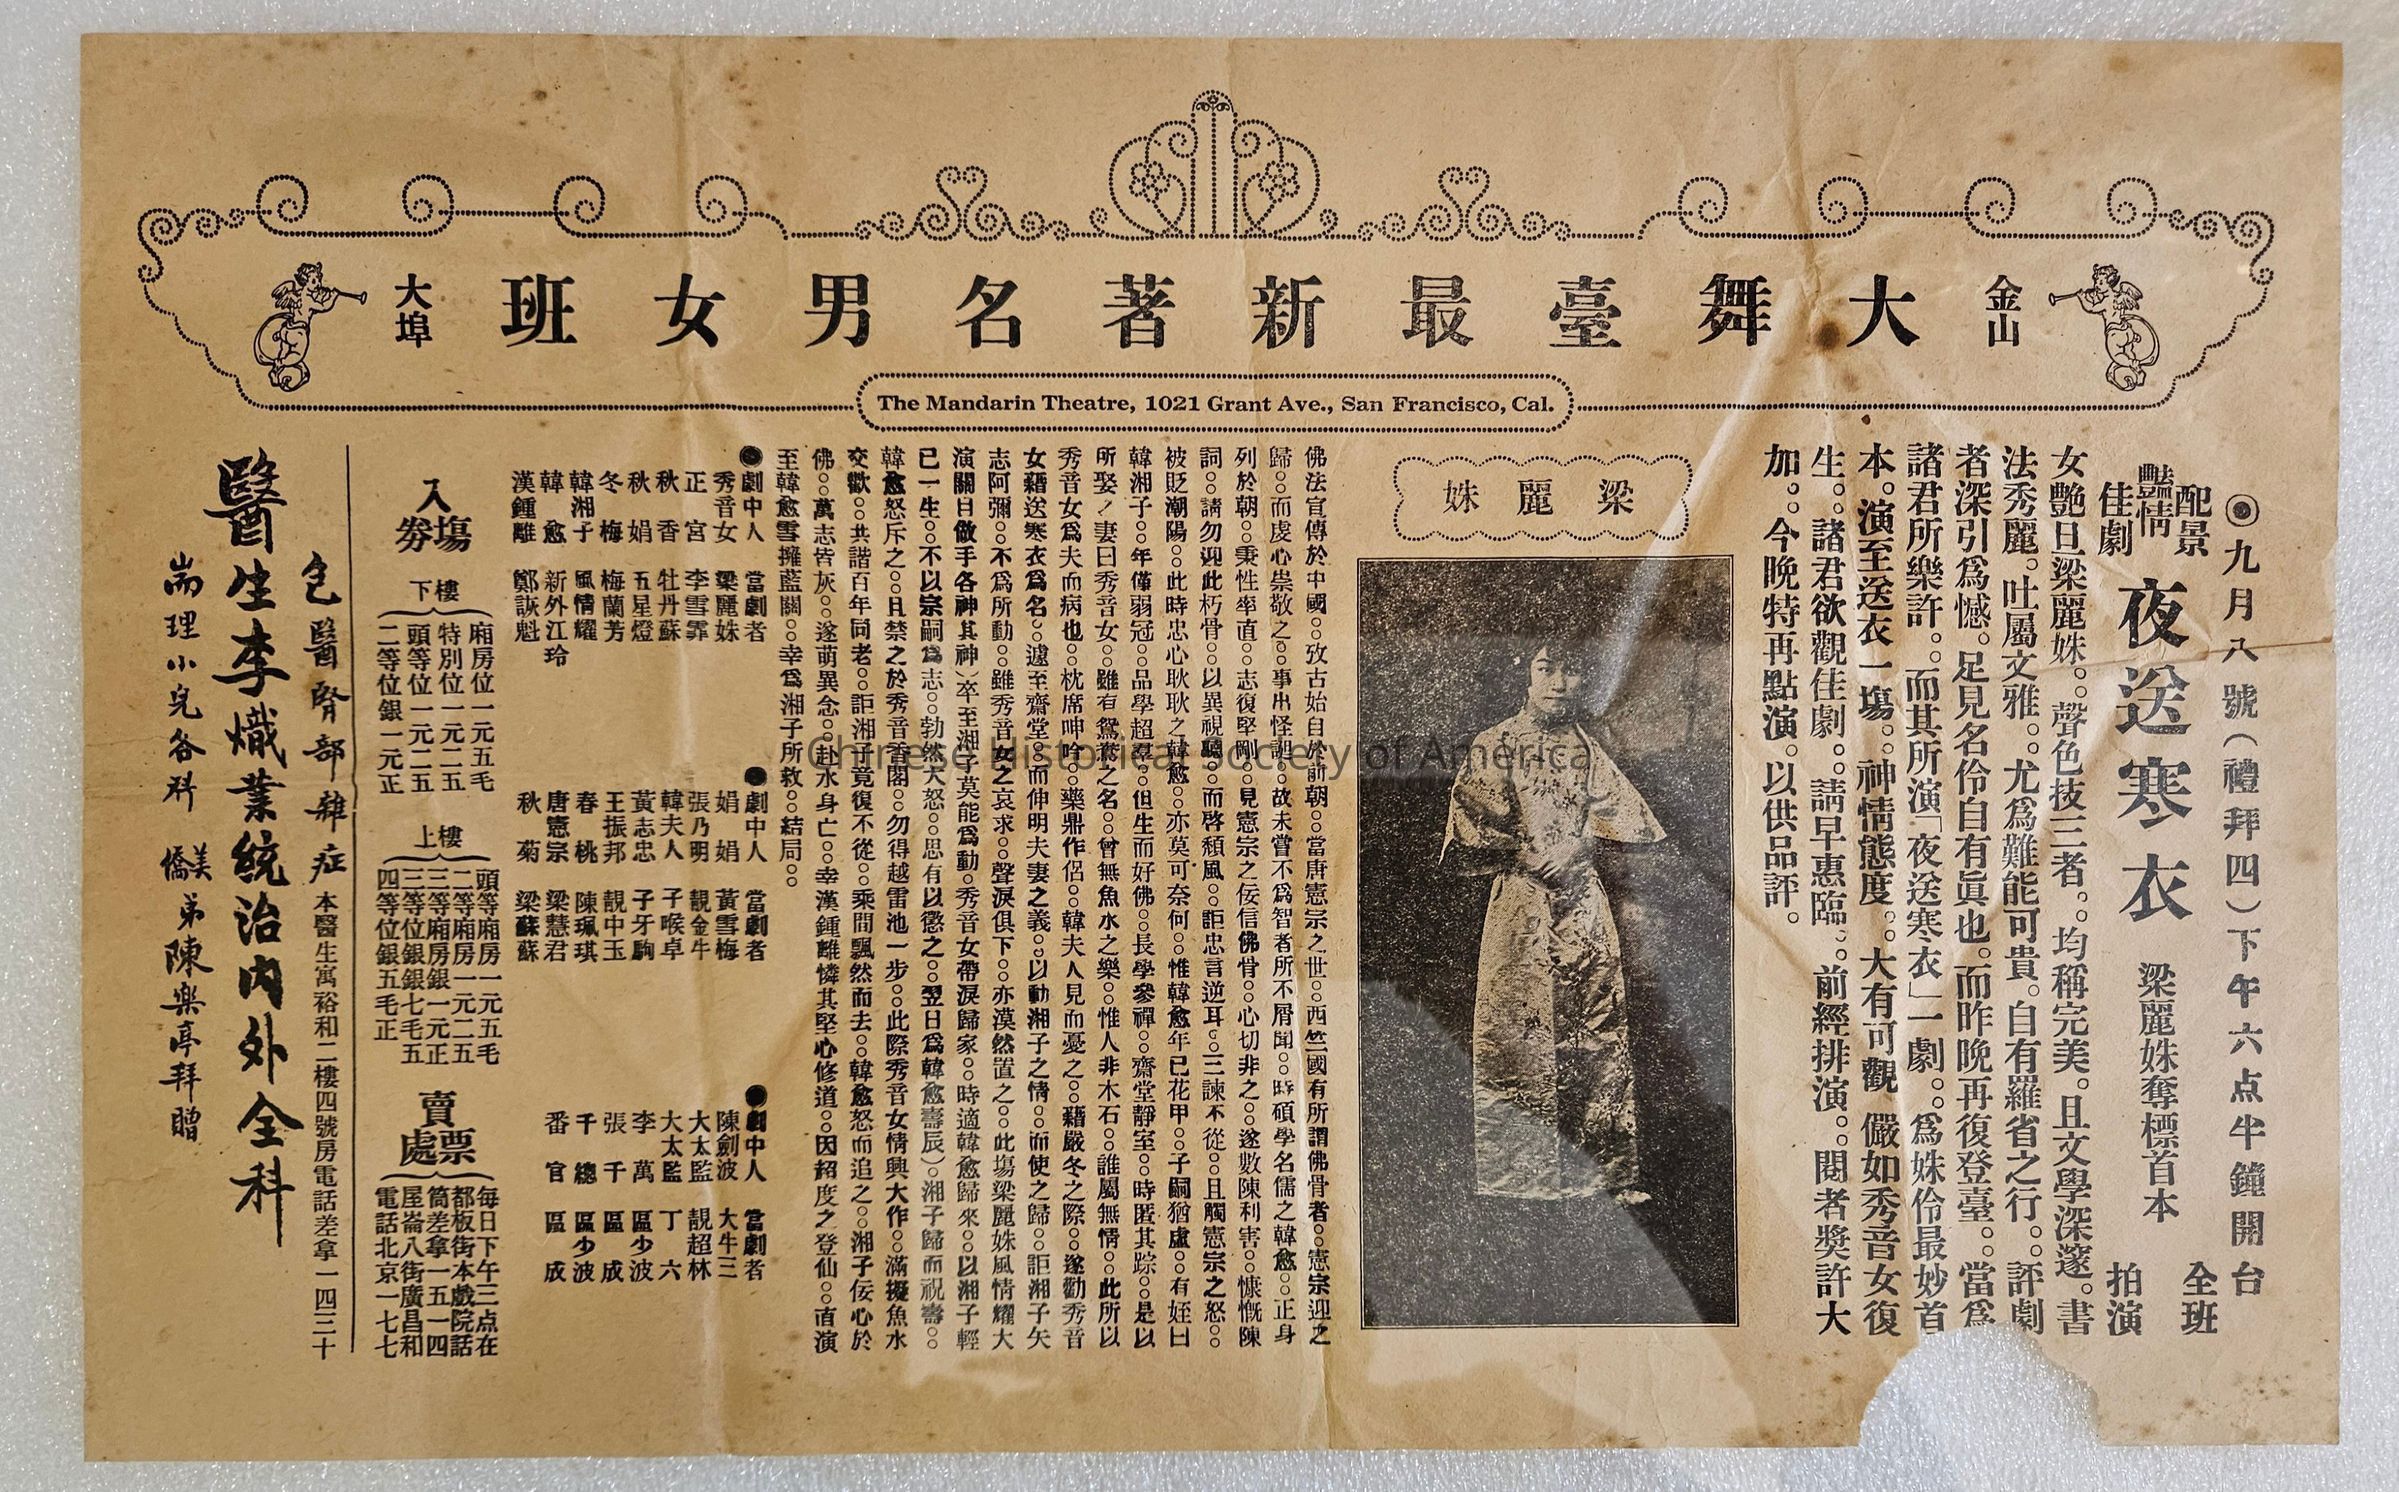 金山
大舞臺最新著名男女班
大埠
The Mandarin Theatre, 1021 Grant Ave., San Francisco, Cal.
◉九月八號（禮拜四）下午六点半鐘開台
配景
豔情
佳劇
夜送寒衣
梁麗姝奪標首本
全班
拍演
女艷旦梁麗姝。。聲色技三者。。均稱完美。且文學深邃。書
法秀麗。吐屬文雅。。尤爲難能可貴。自有羅省之行。。評劇
者深引爲憾。足見名伶自有眞也。而昨晚再復登臺。。當爲
諸君所樂許。。而其所演「夜送寒衣」一劇。。爲姝伶最妙首
本。演至送衣一塲。。神情態度。。大有可觀 儼如秀音女復
生。。諸君欲觀佳劇。。請早惠臨。。前經排演。。閱者奬許大
加。。今晚特再點演。以供品評。
梁麗姝
佛法宣傳於中國。。攷古始自於前朝。。當唐憲宗之世。。西竺國有所謂佛骨者。。憲宗迎之
歸。。而虔心崇敬之。。事出怪誕。。故未嘗不爲智者所不屑聞。。時碩學名儒之韓愈。。正身
列於朝。。秉性率直。。志復堅剛。。見憲宗之佞信佛骨。。心切非之。。遂數陳利害。。慷慨陳
詞。。請勿迎此朽骨。。以異視聽。。而啓頹風。。詎忠言逆耳。。三諫不從。。且觸憲宗之怒。。
被貶潮陽。。此時忠心耿耿之韓愈。。亦莫可奈何。。惟韓愈年已花甲。。子嗣猶虛。。有姪曰
韓湘子。。年僅弱冠。。品學超羣。。但生而好佛。。長學參禪。。齋堂靜室。。時匿其踪。。是以
所娶之妻曰秀音女。。雖有鴛鴦之名。。曾無魚水之樂。。惟人非木石。。誰屬無情。。此所以
秀音女爲夫而病也。。枕席呻吟。。藥鼎作侶。。韓夫人見而憂之。。藉嚴冬之際。。遂勸秀音
女藉送寒衣爲名。。遽至齋堂。。而伸明夫妻之義。。以動湘子之情。。而使之歸。。詎湘子矢
志阿彌。。不爲所動。。雖秀音女之哀求。。聲淚俱下。。亦漠然置之。。（此塲梁麗姝風情耀大
演關目做手各神其神）卒至湘子莫能爲動。秀音女帶淚歸家。。時適韓愈歸來。。以湘子輕
已一生。。不以宗嗣爲志。。勃然大怒。。思有以懲之。。（翌日爲韓愈壽辰）。湘子歸而祝壽。。
韓愈怒斥之。。且禁之於秀音香閣。。勿得越雷池一步。。此際秀音女情興大作。。滿擬魚水
交歡。。共諧百年同老。。詎湘子竟復不從。。乘間飄然而去。。韓愈怒而追之。。湘子佞心於
佛。。萬志皆灰。。遂萌異念。。赴水身亡。。幸漢鍾離憐其堅心修道。。因招度之登仙。。直演
至韓愈雪擁藍關。。幸爲湘子所救。。結局。。
◉劇中人 當劇者
秀音女 梁麗姝
正宮 李雪霏
秋香 牡丹蘇
秋娟 五星燈
冬梅 梅蘭芳
韓湘子 風情耀
韓愈 新外江玲
漢鍾離 鄭詼魁
●劇中人 當劇者
娟娟 黃雪梅
張乃明 靚金牛
韓夫人 子喉卓
黃志忠 子牙駒
王振邦 靚中玉
春桃 陳珮琪
唐憲宗 梁慧君
秋菊 梁蘇蘇
●劇中人 當劇者
陳劍波 大牛三
大太監 靚超林
大太監 丁六
李萬 區少波
張千 區成
千總 區少波
番官 區成
入塲
劵
樓下
廂房位一元五毛
特別位一元二五
頭等位一元二五
二等位銀一元正
樓上
頭等廂房一元五毛
二等廂房一元二五
三等廂房銀一元正
三等位銀七毛五
四等位銀五毛正
賣票
處
每日下午三点在
都板街本戲院話
筒差拿一五一四
屋崙八街廣昌和
電話北京一七七
包醫腎部雜症
本醫生寓裕和二樓四號房電話差拿一四三十
醫生李熾業統治內外全科
耑理小兒各科
美僑弟陳樂亭拜贈
Chinese Historical Society of America